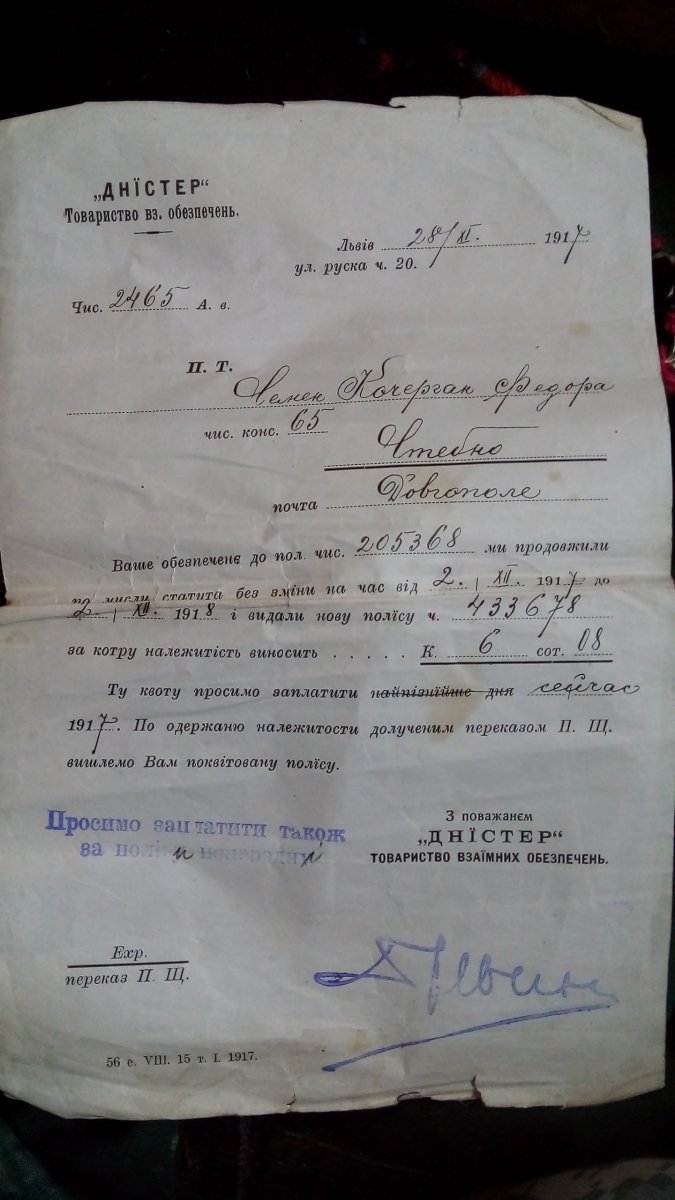 „ДНЇСТЕР"
Товариство вз. обезпечень.
Львів 28/XI. 1917
ул. руска ч. 20.
Чис. 2465 А. в.
П. Т.
Кочерган Федора
чис. конс. 65
Стебно
почта Довгополе
Ваше обезпеченє до пол. чис. 205368 ми продовжили
по мисли статита без зміни на час від 2. | XII. 1917 до
2 | XII. 1918 і видали нову полїсу ч. 433678
за котру належитість виносить . . . . . К. 6 сот. 08
Ту квоту просимо заплатити найпізнїйше дня сейчас
1917. По одержаню належитости долученим переказом П. Щ.
вишлемо Вам поквітовану полїсу.
Просимо заплатити також
за
З поважанєм
„ДНЇСТЕР"
ТОВАРИСТВО ВЗАЇМНИХ ОБЕЗПЕЧЕНЬ.
Exp.
переказ П. Щ.
56 е. VIII. 15 т. I. 1917.